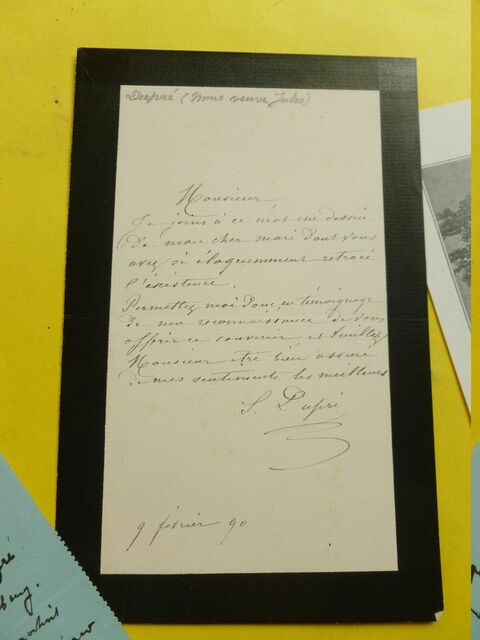 Dupré (Mme veuve Jules)
Monsieur
Je joins à ce mot un dessin
de mon cher mari dont vous
avez si éloquemment retracé
l'éxistence.
Permettez moi donc, en témoignage
de ma reconnaissance de vous
offrir ce souvenir et veuillez
Monsieur être bien assuré
de mes sentiments les meilleurs
S. Dupré
9 février 90